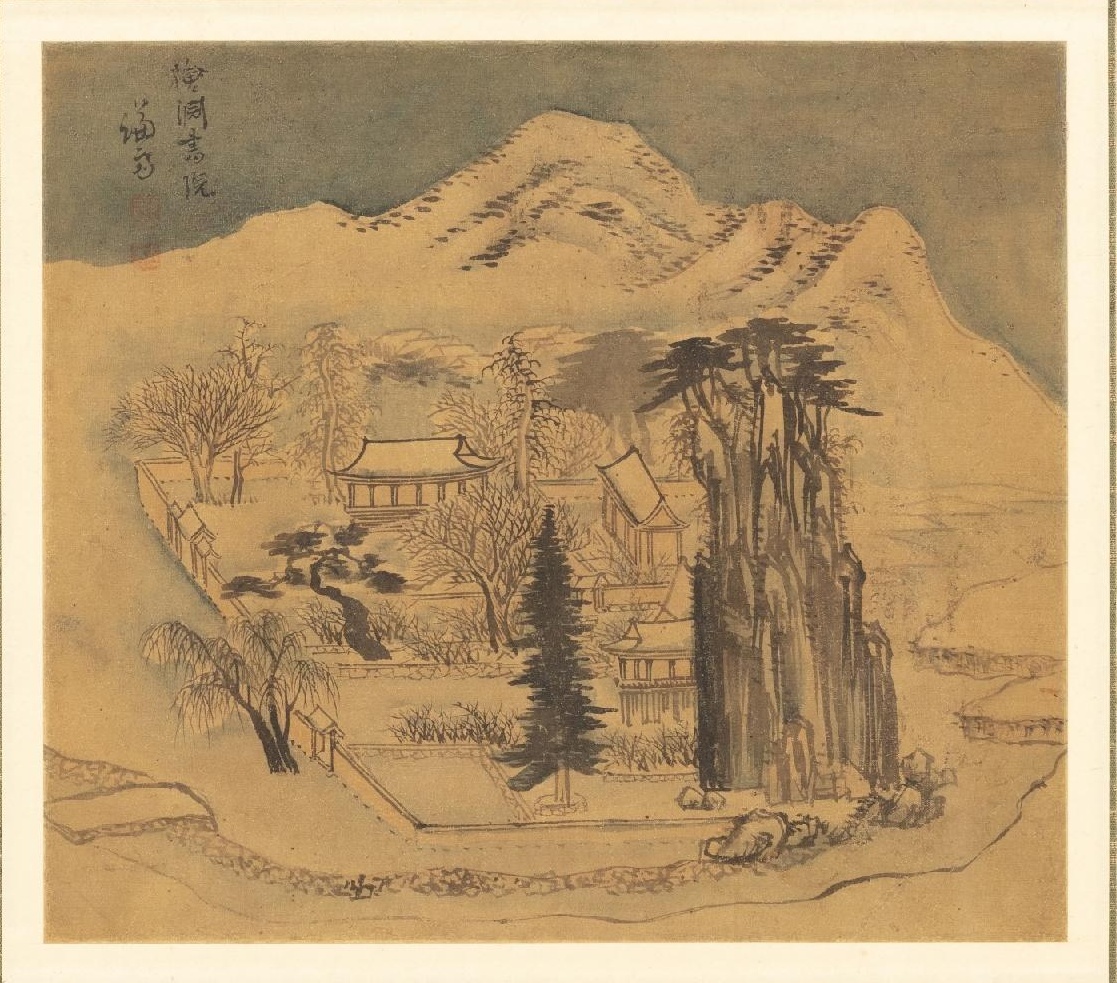 檜淵書院
謙齋